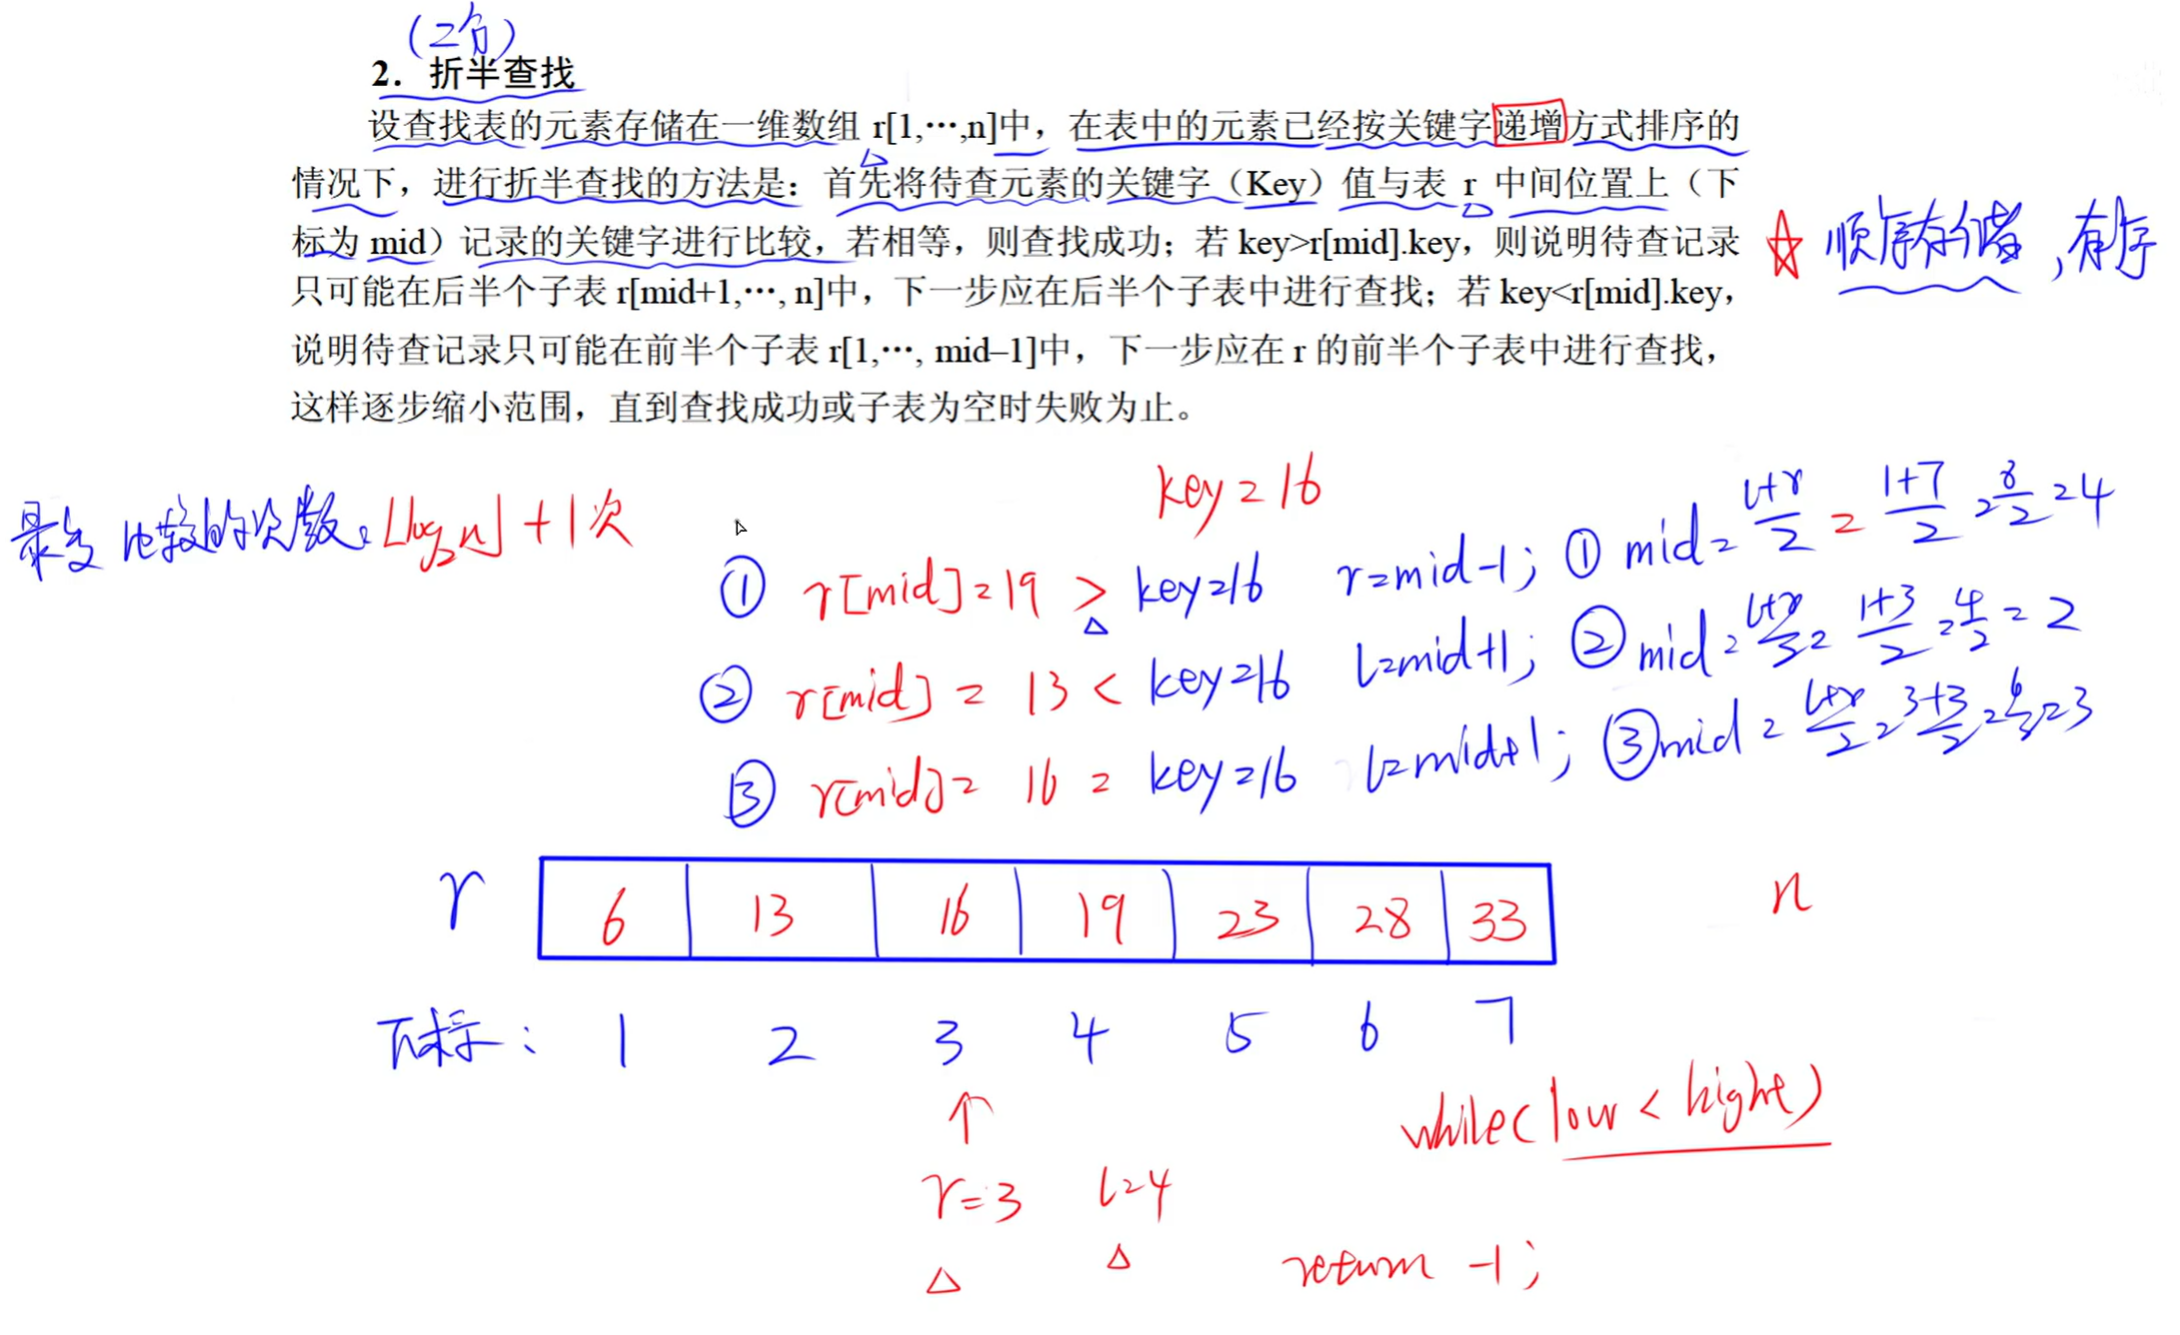 (2分)
2. 折半查找
设查找表的元素存储在一维数组 r[1,…,n]中，在表中的元素已经按关键字递增方式排序的
情况下，进行折半查找的方法是：首先将待查元素的关键字（Key）值与表 r 中间位置上（下
标为 mid）记录的关键字进行比较，若相等，则查找成功；若 key>r[mid].key，则说明待查记录
只可能在后半个子表 r[mid+1,…, n]中，下一步应在后半个子表中进行查找；若 key<r[mid].key，
说明待查记录只可能在前半个子表 r[1,…, mid–1]中，下一步应在 r 的前半个子表中进行查找，
这样逐步缩小范围，直到查找成功或子表为空时失败为止。
☆ 顺序存储，有序
最多比较的次数：⌊log₂n⌋+1次
key=16
① r[mid]=19 > key=16 r=mid-1; ① mid=(l+r)/2=(1+7)/2=8/2=4
② r[mid]=13 < key=16 l=mid+1; ② mid=(l+r)/2=(1+3)/2=4/2=2
③ r[mid]=16 = key=16 l=mid+1; ③ mid=(l+r)/2=(3+3)/2=6/2=3
r 6 13 16 19 23 28 33 n
下标: 1 2 3 4 5 6 7
while(low < hight)
r=3 l=4
return -1;